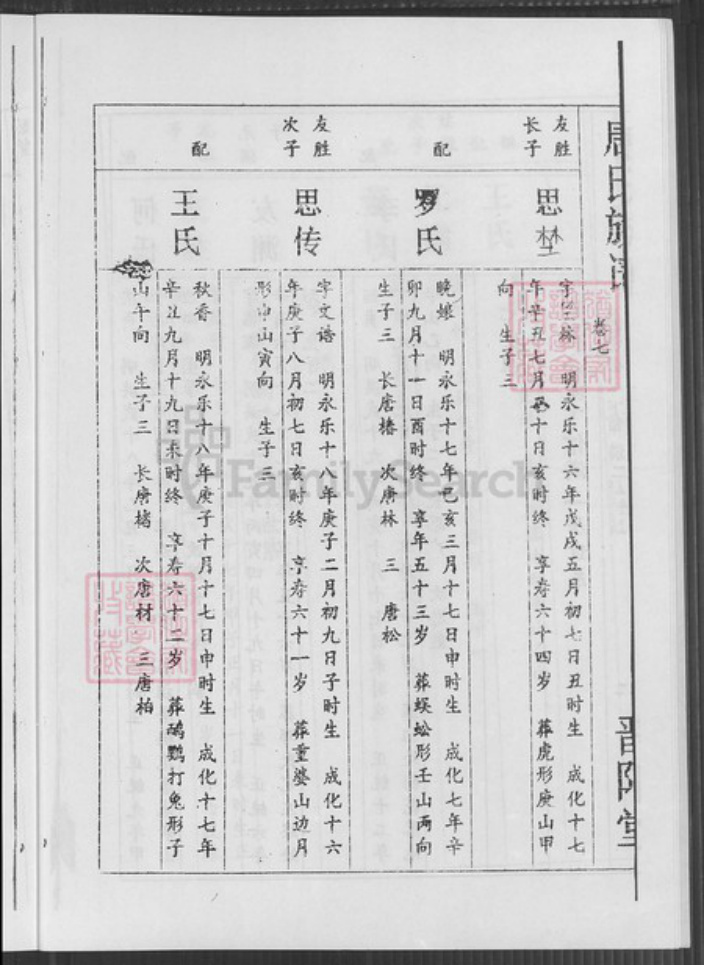 周氏族谱
卷七
晋阳堂
友胜
长子
思埜
字 林 明永乐十六年戊戌五月初七日丑时生 成化十七
年辛丑七月 十日亥时终 享寿六十四岁 葬虎形庚山甲
向 生子三
配
罗氏
晚娘 明永乐十七年己亥三月十七日申时生 成化七年辛
卯九月十一日酉时终 享年五十三岁 葬蜈蚣形壬山丙向
生子三 长唐椿 次唐林 三 唐松
友胜
次子
思传
字文诰 明永乐十八年庚子二月初九日子时生 成化十六
年庚子八月初七日亥时终 享寿六十一岁 葬董婆山边月
形申山寅向 生子三
配
王氏
秋香 明永乐十八年庚子十月十七日申时生 成化十七年
辛丑九月十九日未时终 享寿六十二岁 葬鸬鹚打兔形子
山午向 生子三 长唐 次唐材 三唐柏
FamilySearch